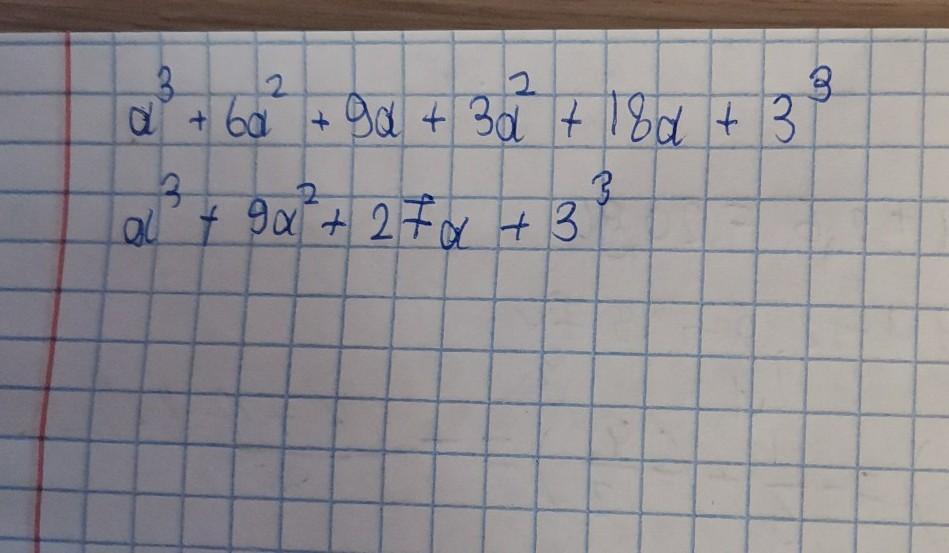 a³ + 6a² + 9a + 3a² + 18a + 3³
a³ + 9a² + 27a + 3³